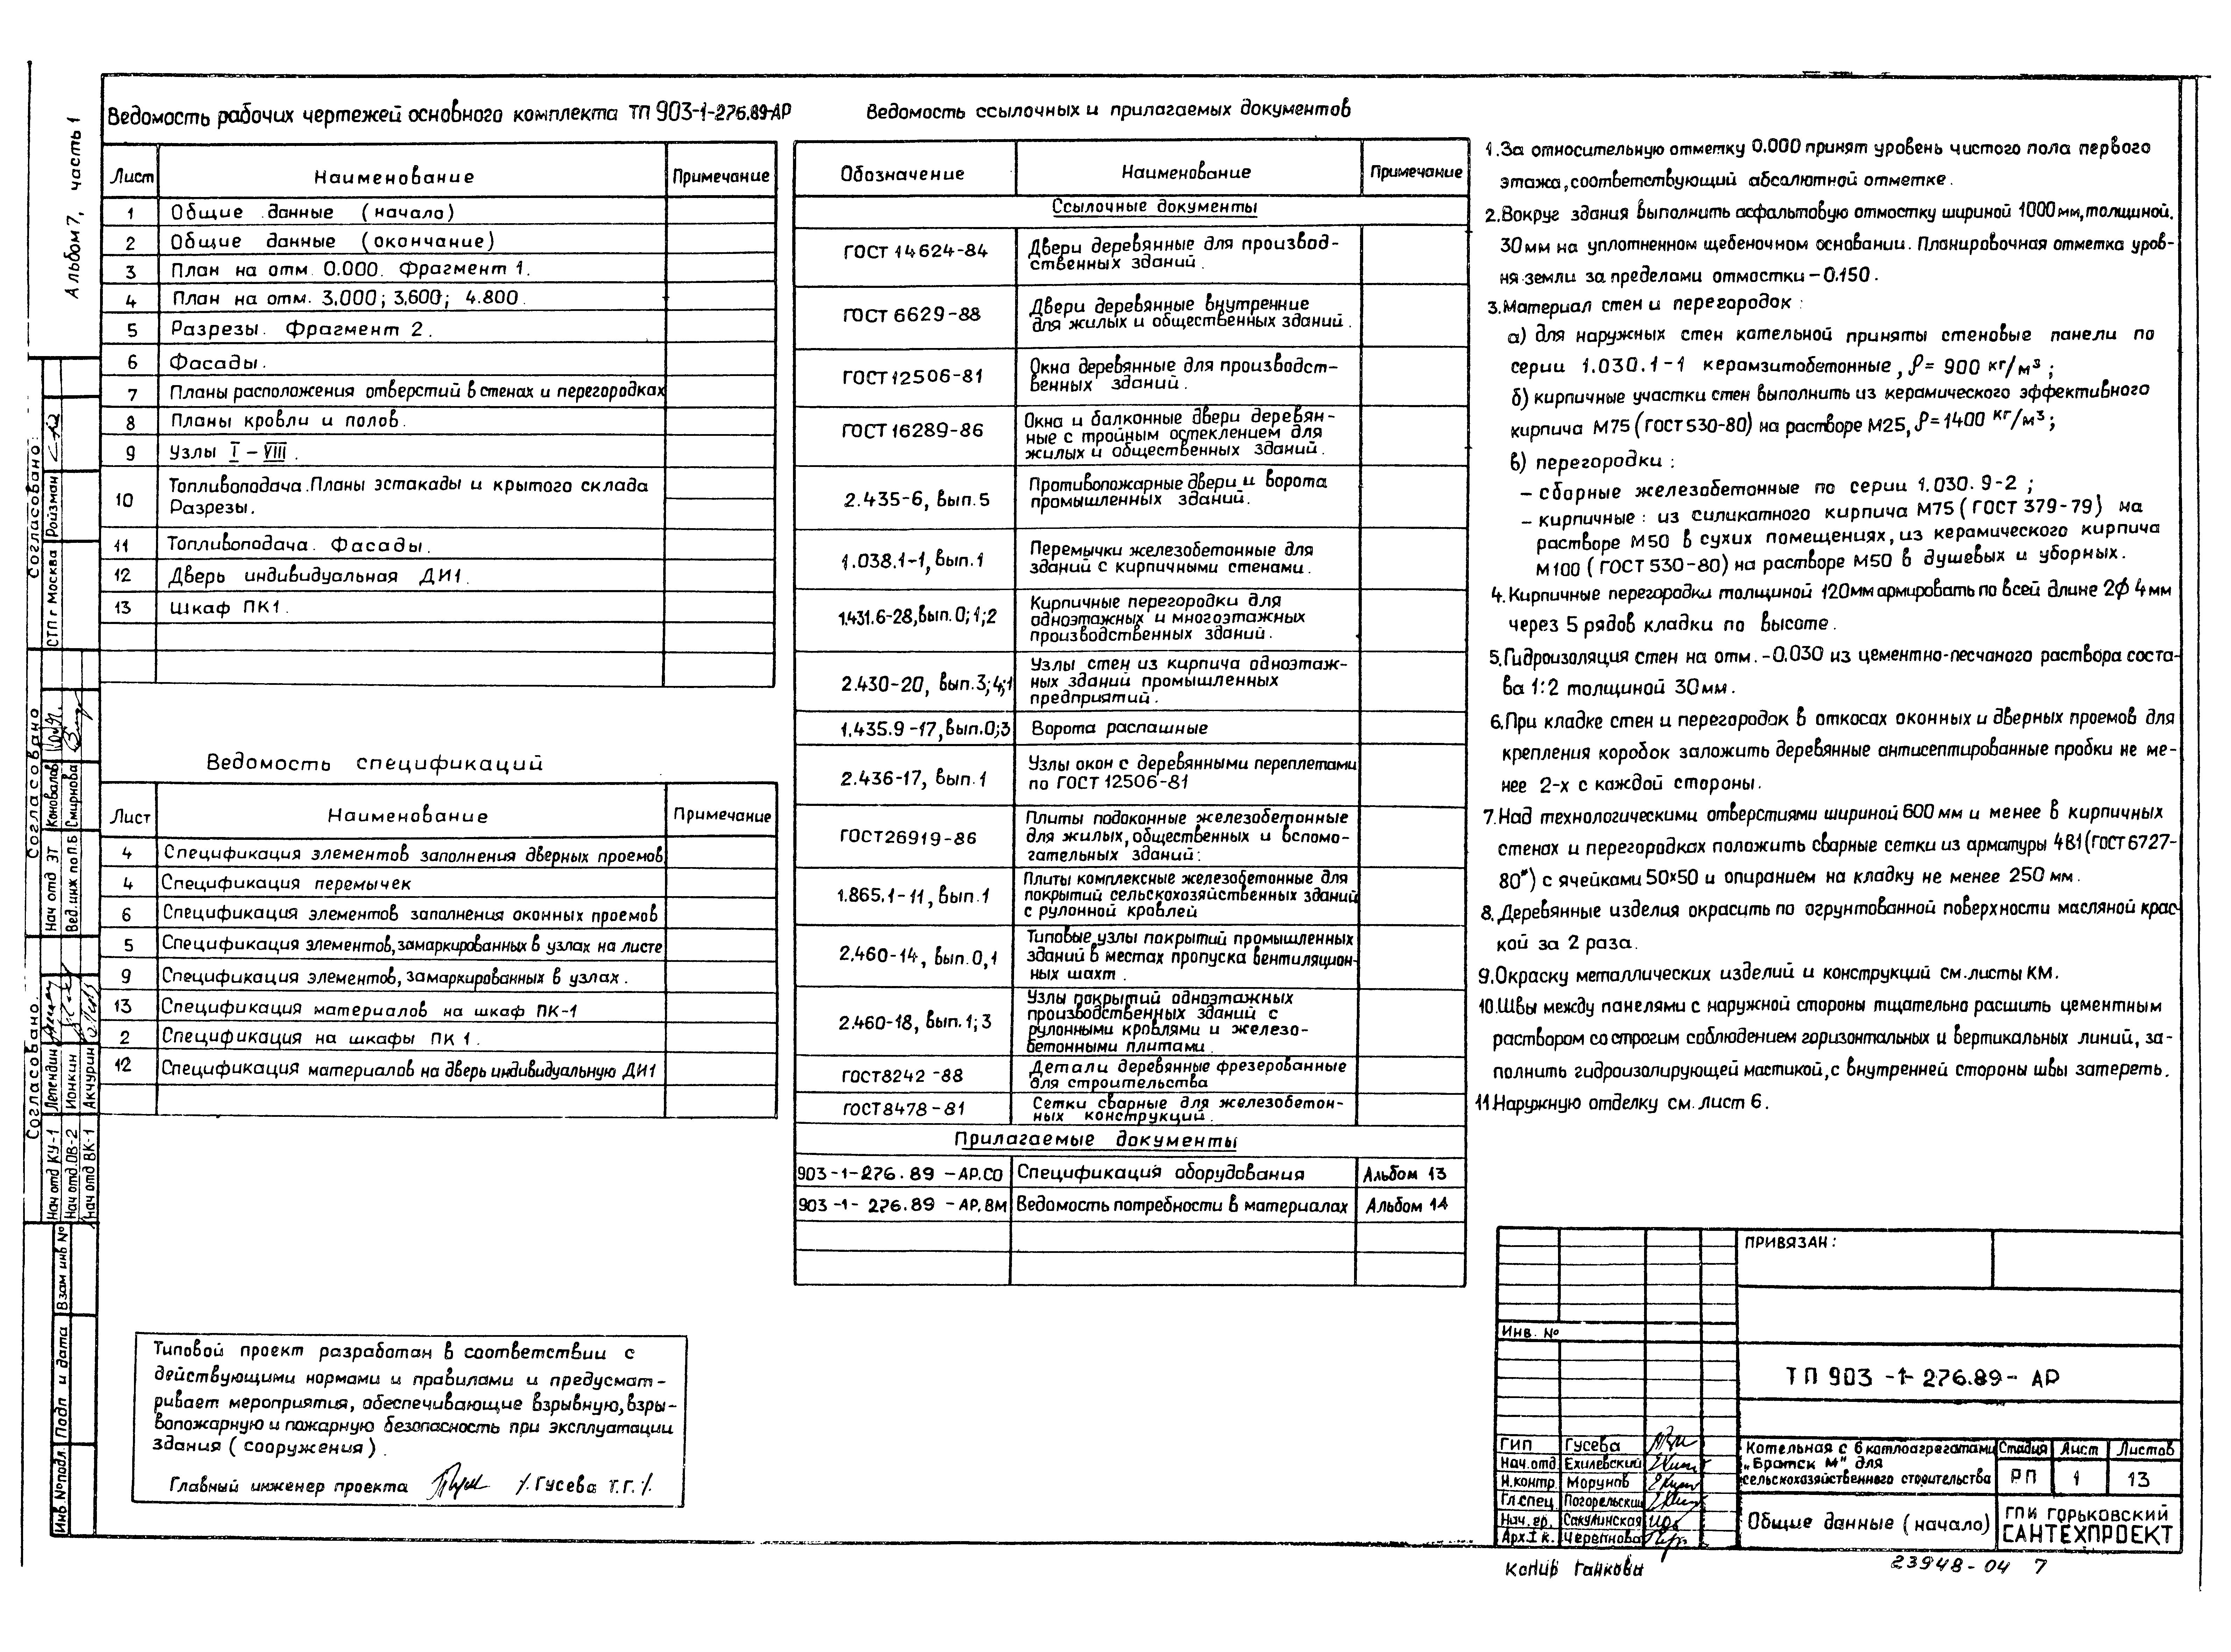 Альбом 7, часть 1
Ведомость рабочих чертежей основного комплекта ТП 903-1-276.89-АР
Лист Наименование Примечание
1 Общие данные (начало)
2 Общие данные (окончание)
3 План на отм. 0.000. Фрагмент 1.
4 План на отм. 3.000; 3.600; 4.800.
5 Разрезы. Фрагмент 2.
6 Фасады.
7 Планы расположения отверстий в стенах и перегородках
8 Планы кровли и полов.
9 Узлы I – VIII.
10 Топливоподача. Планы эстакады и крытого склада
Разрезы.
11 Топливоподача. Фасады.
12 Дверь индивидуальная ДИ1.
13 Шкаф ПК1.
Ведомость спецификаций
Лист Наименование Примечание
4 Спецификация элементов заполнения дверных проемов
4 Спецификация перемычек
6 Спецификация элементов заполнения оконных проемов
5 Спецификация элементов, замаркированных в узлах на листе
9 Спецификация элементов, замаркированных в узлах.
13 Спецификация материалов на шкаф ПК-1
2 Спецификация на шкафы ПК 1.
12 Спецификация материалов на дверь индивидуальную ДИ1
Типовой проект разработан в соответствии с
действующими нормами и правилами и предусмат-
ривает мероприятия, обеспечивающие взрывную, взры-
вопожарную и пожарную безопасность при эксплуатации
здания (сооружения).
Главный инженер проекта /. Гусева Т.Г. /.
Ведомость ссылочных и прилагаемых документов
Обозначение Наименование Примечание
Ссылочные документы
ГОСТ 14624-84 Двери деревянные для производ-
ственных зданий.
ГОСТ 6629-88 Двери деревянные внутренние
для жилых и общественных зданий.
ГОСТ 12506-81 Окна деревянные для производст-
венных зданий.
ГОСТ 16289-86 Окна и балконные двери деревян-
ные с тройным остеклением для
жилых и общественных зданий.
2.435-6, вып.5 Противопожарные двери и ворота
промышленных зданий.
1.038.1-1, вып.1 Перемычки железобетонные для
зданий с кирпичными стенами.
1.431.6-28, вып.0;1;2 Кирпичные перегородки для
одноэтажных и многоэтажных
производственных зданий.
2.430-20, вып.3;4;1 Узлы стен из кирпича одноэтаж-
ных зданий промышленных
предприятий.
1.435.9-17, вып.0;3 Ворота распашные
2.436-17, вып.1 Узлы окон с деревянными переплетами
по ГОСТ 12506-81
ГОСТ 26919-86 Плиты подоконные железобетонные
для жилых, общественных и вспомо-
гательных зданий.
1.865.1-11, вып.1 Плиты комплексные железобетонные для
покрытий сельскохозяйственных зданий
с рулонной кровлей
2.460-14, вып.0,1 Типовые узлы покрытий промышленных
зданий в местах пропуска вентиляцион-
ных шахт.
2.460-18, вып.1;3 Узлы покрытий одноэтажных
производственных зданий с
рулонными кровлями и железо-
бетонными плитами.
ГОСТ 8242-88 Детали деревянные фрезерованные
для строительства
ГОСТ 8478-81 Сетки сварные для железобетон-
ных конструкций.
Прилагаемые документы
903-1-276.89-АР.СО Спецификация оборудования Альбом 13
903-1-276.89-АР.ВМ Ведомость потребности в материалах Альбом 14
1. За относительную отметку 0.000 принят уровень чистого пола первого
этажа, соответствующий абсолютной отметке.
2. Вокруг здания выполнить асфальтовую отмостку шириной 1000 мм, толщиной
30 мм на уплотненном щебеночном основании. Планировочная отметка уров-
ня земли за пределами отмостки –0.150.
3. Материал стен и перегородок:
а) для наружных стен котельной приняты стеновые панели по
серии 1.030.1-1 керамзитобетонные, ρ= 900 кг/м³;
б) кирпичные участки стен выполнить из керамического эффективного
кирпича М75 (ГОСТ 530-80) на растворе М25, ρ=1400 кг/м³;
в) перегородки:
– сборные железобетонные по серии 1.030.9-2;
– кирпичные: из силикатного кирпича М75 (ГОСТ 379-79) на
растворе М50 в сухих помещениях, из керамического кирпича
М100 (ГОСТ 530-80) на растворе М50 в душевых и уборных.
4. Кирпичные перегородки толщиной 120мм армировать по всей длине 2ф4мм
через 5 рядов кладки по высоте.
5. Гидроизоляция стен на отм. –0.030 из цементно-песчаного раствора соста-
ва 1:2 толщиной 30мм.
6. При кладке стен и перегородок в откосах оконных и дверных проемов для
крепления коробок заложить деревянные антисептированные пробки не ме-
нее 2-х с каждой стороны.
7. Над технологическими отверстиями шириной 600мм и менее в кирпичных
стенах и перегородках положить сварные сетки из арматуры 4В1 (ГОСТ 6727-
80*) с ячейками 50×50 и опиранием на кладку не менее 250 мм.
8. Деревянные изделия окрасить по огрунтованной поверхности масляной крас-
кой за 2 раза.
9. Окраску металлических изделий и конструкций см. листы КМ.
10. Швы между панелями с наружной стороны тщательно расшить цементным
раствором со строгим соблюдением горизонтальных и вертикальных линий, за-
полнить гидроизолирующей мастикой, с внутренней стороны швы затереть.
11. Наружную отделку см. лист 6.
ПРИВЯЗАН:
Инв. №
ТП 903-1-276.89-АР
ГИП Гусева
Нач.отд Ехилевский
Н.контр. Морунов
Гл.спец. Погорельский
Нач.гр. Сакулинская
Арх.I к. Черепнова
Котельная с 6 котлоагрегатами
„Братск М" для
сельскохозяйственного строительства
Стадия Лист Листов
РП 1 13
Общие данные (начало)
ГПИ ГОРЬКОВСКИЙ
САНТЕХПРОЕКТ
Копир Ганкова
23948-04 7
Согласовано:
СТП г Москва Ройзман
Согласовано
Нач отд ЭТ Коновалов
Вед.инж по П.Б Смирнова
Согласовано.
Нач отд КУ-1 Лепендин
Нач отд.ОВ-2 Ионкин
Нач отд ВК-1 Акчурин
Взам инв №
Подп и дата
Инв.№ подл.